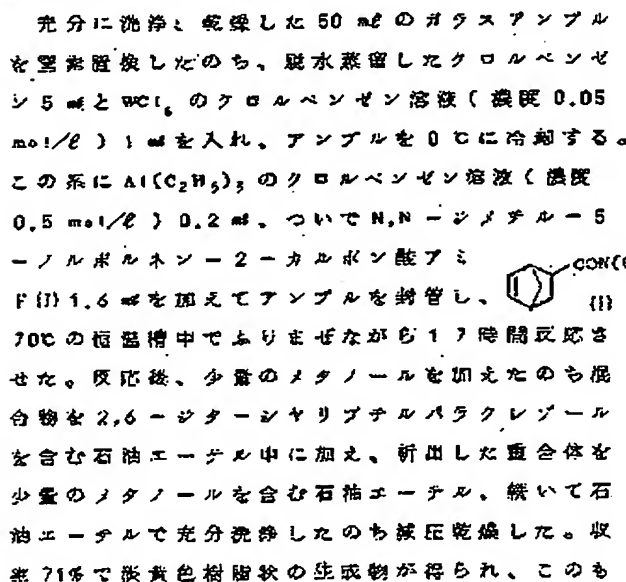 充分に洗浄、乾燥した 50 ml のガラスアンプル
を窒素置換したのち、脱水蒸留したクロルベンゼ
ン 5 ml と WCl6 のクロルベンゼン溶液（濃度 0.05
mol/l ） 1 ml を入れ、アンプルを 0 ℃に冷却する。
この系に Al(C2H5)3 のクロルベンゼン溶液（濃度
0.5 mol/l ） 0.2 ml、ついで N,N −ジメチル−5
−ノルボルネン−2−カルボン酸アミ
ド(I) 1.6 ml を加えてアンプルを封管し、
CON(
(I)
70℃の恒温槽中でふりまぜながら 17 時間反応さ
せた。反応後、少量のメタノールを加えたのち混
合物を 2,6 −ジターシヤリブチルパラクレゾール
を含む石油エーテル中に加え、析出した重合体を
少量のメタノールを含む石油エーテル、続いて石
油エーテルで充分洗浄したのち減圧乾燥した。収
率 71% で淡黄色樹脂状の生成物が得られ、このも